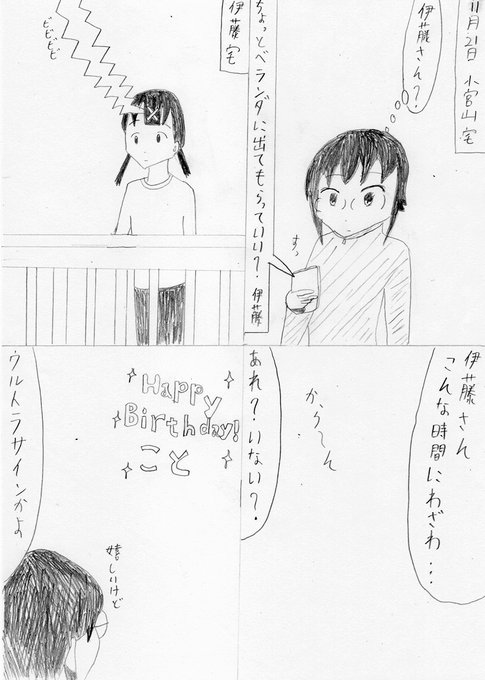 11月21日 小宮山宅
伊藤さん?
すっ
ちょっとベランダに出てもらっていい?
伊藤
伊藤宅
ビビビビ
伊藤さん
こんな時間にわざわ…
からーん
あれ?いない?
Happy
Birthday!
こと
嬉しいけど
ウルトラサインかよ